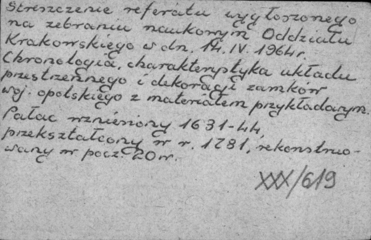 Streszczenie referatu wygłoszonego
na zebraniu naukowym Oddziału
Krakowskiego w dn. 14. IV. 1964 r.
Chronologia, charakterystyka układu
przestrzennego i dekoracji zamków
woj. opolskiego z materiałem przykładowym.
Pałac wzniesiony 1631-44,
przekształcony w r. 1781, rekonstruo-
wany w pocz. 20 w.
XXX/619